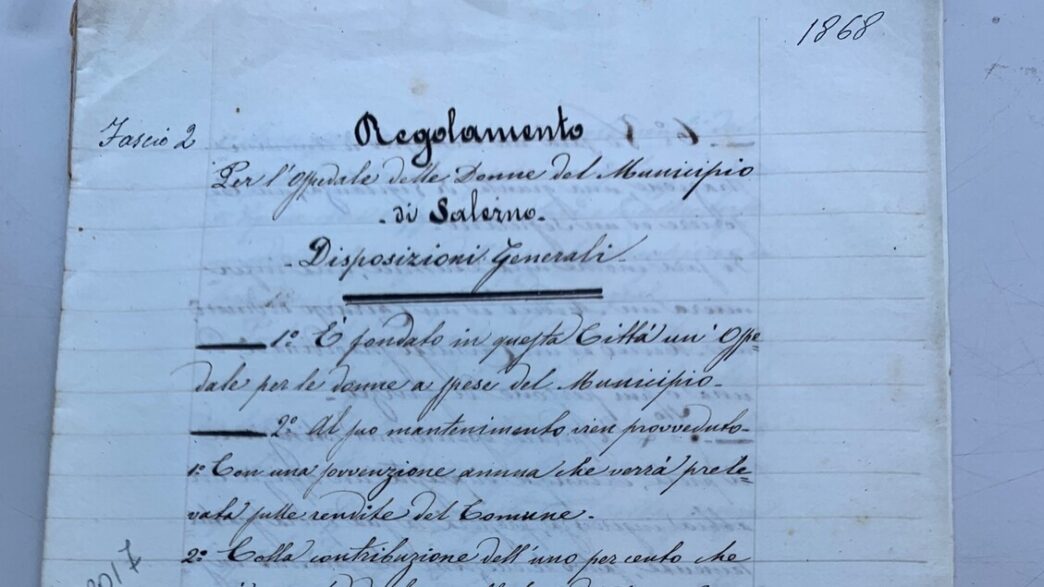 1868
Fascio 2
Regolamento
Per l'Ospedale delle Donne del Municipio
- di Salerno -
- Disposizioni Generali -
1º È fondato in questa Città un' Ospe=
dale per le donne a spese del Municipio -
2º Al suo mantenimento vien provveduto -
1º Con una sovvenzione annua che verrà prele=
vata sulle rendite del Comune -
2º Colla contribuzione dell'uno per cento che